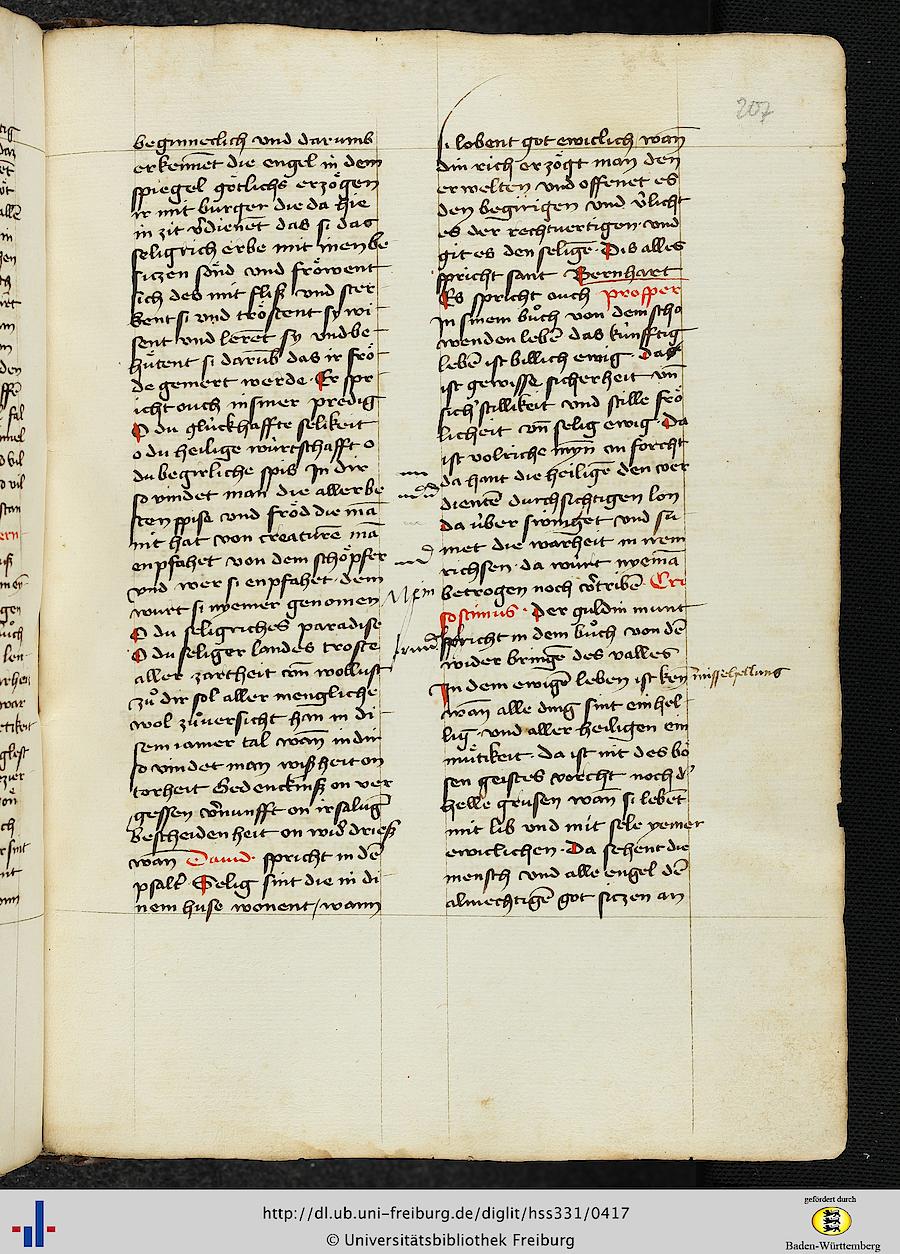 207
beginneclich vnd darumb
erkennet die engel in dem
spiegel götlichs erzögen
ir mit burger die da hie
in zit v̄dienēt das si das
seligrich erbe mit inen be
sitzen sönd vnd fröwent
sich des mit fliß vnd ster
kent si vnd tröstent sy wi
sent vnd lerēt sy vnd be
hütent si darūb das ir frö
de gemert werde. Er spr
icht ouch in siner predig
O du glückhaffte selikeit
o du heilige würtschafft o
du begirliche spis In dir
so vindet man die aller be
sten spise vnd fröd die mā
nit hat von creaturē mā
enpfahet von dem schöpfer
vnd wer si enpfahet dem
wurt si nyemer genomen
O du seligriches paradise
O du seliger landes troste
aller zartheit vn̄ wollust
zů dir sol aller mengliche
wol zůversicht han in di
sem iamer tal wan̄ in dir
so vindet man wißheit on
torheit Gedencknß on ver
gessen v̄nunfft on irsalung
bescheidenheit on wid̄drieß
wan̄ Dauid. spricht in dē
psalt̄ Selig sint die in di
nem huse wonent / wann
si lobent got ewiclich wan̄
din rich erzögt man den
erwelten vnd offenet es
den begirigen vnd v̄licht
es der rechtuertigen. vnd
git es den selige. Dis alles
spricht sant Bernhart
Es spricht ouch prosper
In sinem bůch von dem scho
wenden lebē das künfftig
lebē ist billich ewig. Das
ist gewisse sicherheit vn̄
sich stillikeit vnd stille frö
licheit vn̄ selig ewig. Da
ist volriche myn̄ on forcht
da hant die heiligē den ver
dientē durchsichtigen lon
da über swinget vnd sü
met die warheit in irem
richsen. da würt nyemā
betrogen noch v̄tribē. Cri
sostimus. Der guldin munt
spricht in dem bůch von dē
wider bringē des valles
In dem ewigē leben ist ken missehellung
wan̄ alle ding sint einhel
lig. vnd aller heiligen ein
mütikeit. da ist nit des bö
sen geistes vorcht noch d̄
helle grusen wan̄ si lebēt
mit lib vnd mit sele yemer
ewiclichen. Da sehent die
mensch vnd alle engel dē
almechtigē got sitzen an
http://dl.ub.uni-freiburg.de/diglit/hss331/0417
© Universitätsbibliothek Freiburg
gefördert durch
Baden-Württemberg